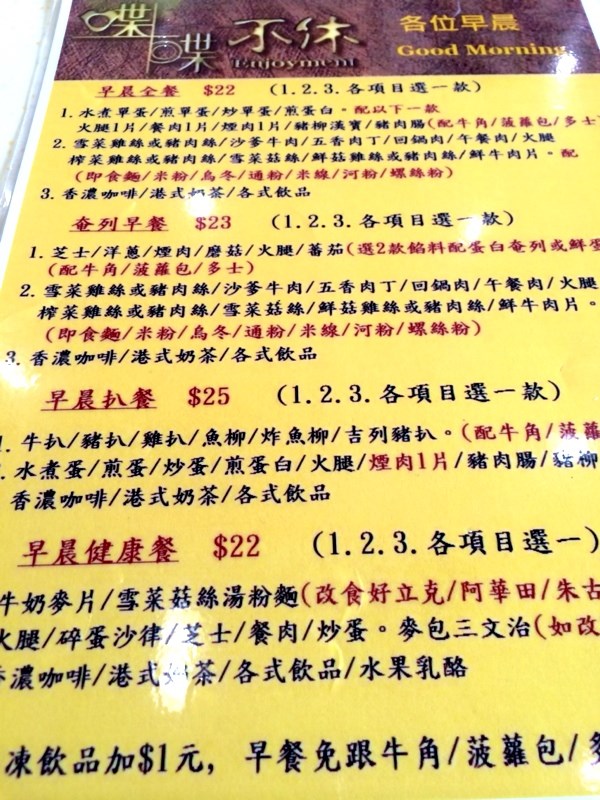 喋喋不休
Enjoyment
各位早晨
Good Morning
早晨全餐 $22 (1.2.3.各項目選一款)
1. 水煮單蛋/煎單蛋/炒單蛋/煎蛋白。配以下一款
火腿1片/餐肉1片/煙肉1片/豬柳漢寶/豬肉腸(配牛角/菠蘿包/多士
2. 雪菜雞絲或豬肉絲/沙爹牛肉/五香肉丁/回鍋肉/午餐肉/火腿
榨菜雞絲或豬肉絲/雪菜菇絲/鮮菇雞絲或豬肉絲/鮮牛肉片。配
(即食麵/米粉/烏冬/通粉/米線/河粉/螺絲粉)
3. 香濃咖啡/港式奶茶/各式飲品
奄列早餐 $23 (1.2.3.各項目選一款)
1. 芝士/洋蔥/煙肉/磨菇/火腿/蕃茄(選2款餡料配蛋白奄列或鮮蛋
(配牛角/菠蘿包/多士)
2. 雪菜雞絲或豬肉絲/沙爹牛肉/五香肉丁/回鍋肉/午餐肉/火腿
榨菜雞絲或豬肉絲/雪菜菇絲/鮮菇雞絲或豬肉絲/鮮牛肉片。
(即食麵/米粉/烏冬/通粉/米線/河粉/螺絲粉)
3. 香濃咖啡/港式奶茶/各式飲品
早晨扒餐 $25 (1.2.3.各項目選一款)
1. 牛扒/豬扒/雞扒/魚柳/炸魚柳/吉列豬扒。(配牛角/菠蘿
. 水煮蛋/煎蛋/炒蛋/煎蛋白/火腿/煙肉1片/豬肉腸/豬柳
香濃咖啡/港式奶茶/各式飲品
早晨健康餐 $22 (1.2.3.各項目選一)
牛奶麥片/雪菜菇絲湯粉麵(改食好立克/阿華田/朱古
火腿/碎蛋沙律/芝士/餐肉/炒蛋。麥包三文治(如改
香濃咖啡/港式奶茶/各式飲品/水果乳酪
凍飲品加$1元, 早餐免跟牛角/菠蘿包/多